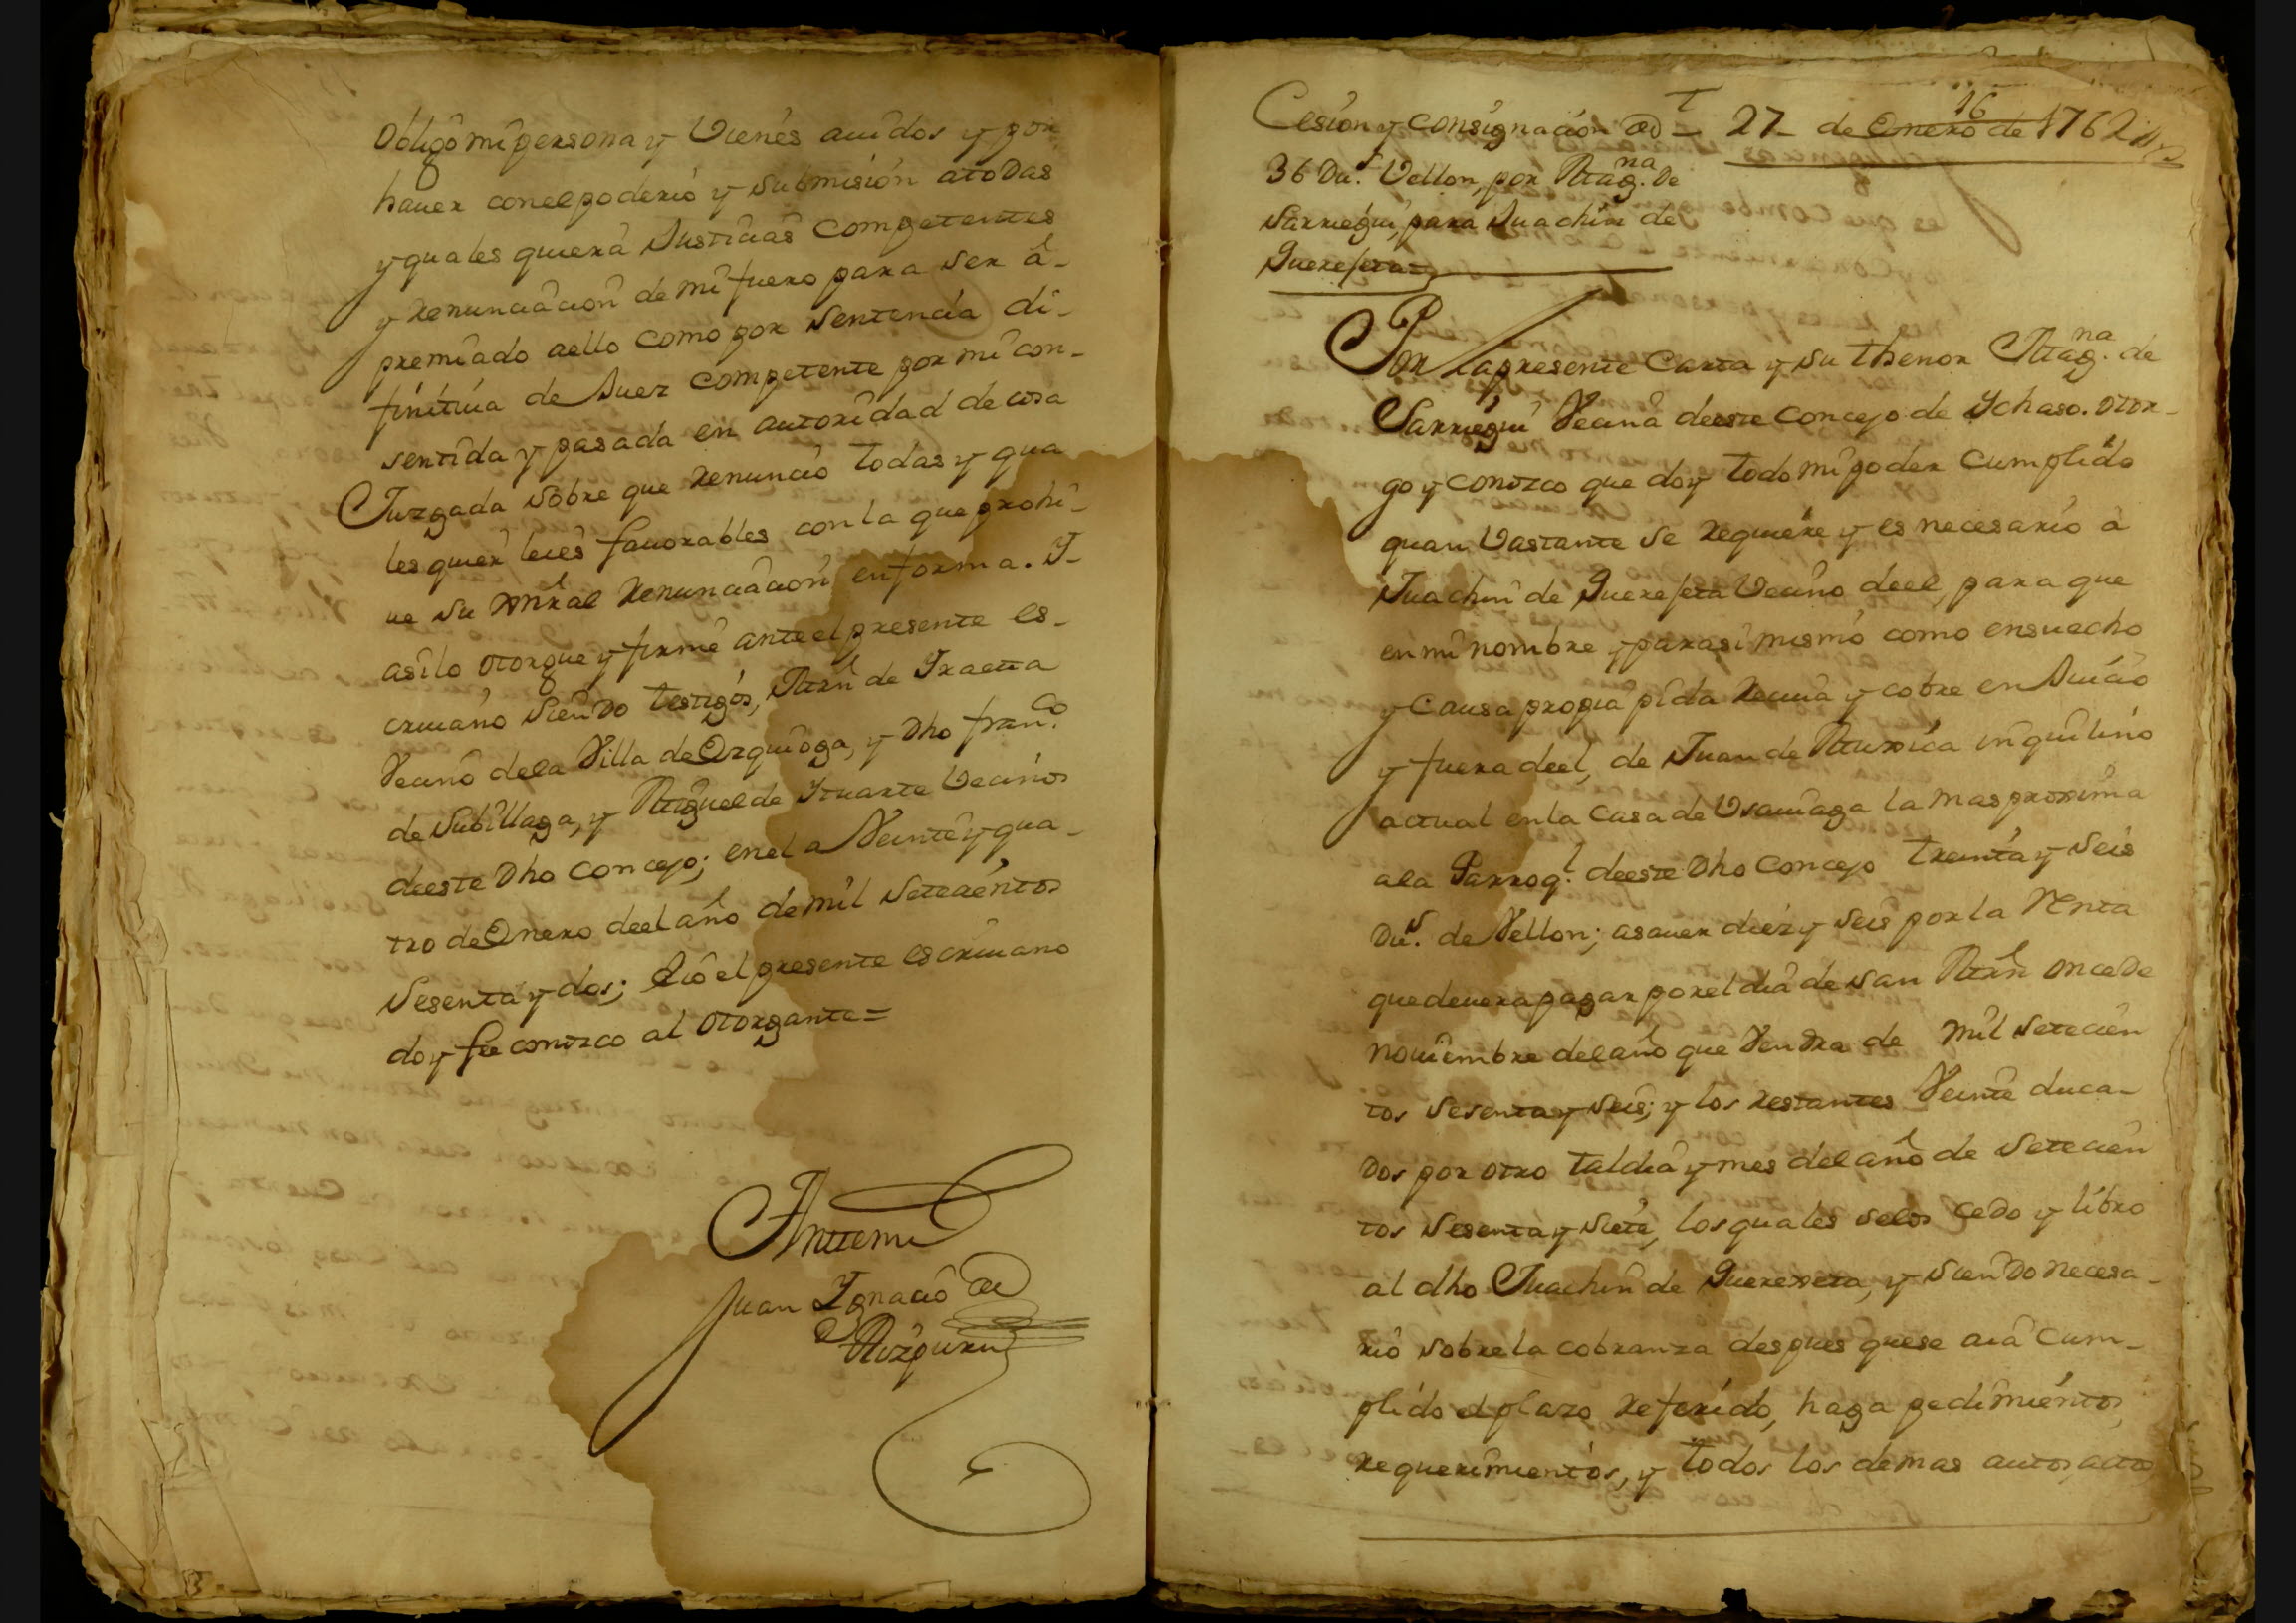 obligo mi persona y vienes auidos y por
hauer con el poderio y submision a todas
y quales quiera Justicias competentes
y renunciacion de mi fuero para ser á-
premiado a ello como por sentencia di-
finitiua de Juez competente por mi con-
sentida y pasada en autoridad de cosa
Juzgada sobre que renuncio todas y qua
les quier leies fauorables con la que prohi-
ue su xnral renunciacion en forma. Y-
asi lo otorgue y firmé ante el presente es-
criuano siendo testigos, Mrn de Iraeta
Vecino de la Villa de Ozquioga, y dho franco.
de Subillaga, y Miguel de Ytuarte vecinos
de este dho concejo; en el a Veinte y qua-
tro de Enero de el año de mil setecientos
Sesenta y dos; é Yo el presente escriuano
doy fee conozco al otorgante =
Ante mi
Juan Ygnacio de
Aizpuru
Cesion y consignacion de 27 de Enero de 1762
16
36 Dus. Vellon, por Magna. de
Sarriegui, para Juachin de
Querejeta
Por la presente Carta y su thenor Magna. de
Sarriegui Vecina de este concejo de Ychaso. otor-
go y conozco que doy todo mi poder cumplido
quan vastante se requiere y es necesario á
Juachin de Querejeta vecino de el, para que
en mi nombre y para si mismo como en su echo
y causa propia pida reciua y cobre en Juicio
y fuera de el, de Juan de inquilino
actual en la casa de Vsauiaga la mas proxima
a la Parroql. de este dho concejo treinta y seis
Dus. de Vellon; asauer diez y seis por la renta
que deuera pagar por el dia de san Mrn once de
nouiembre del año que vendra de mil setecien
tos sesenta y seis; y los restantes Veinte duca-
dos por otro tal dia y mes del año de setecien
tos sesenta y siete, los quales selos cedo y libro
al dho Juachin de Querexeta, y siendo necesa-
rio sobre la cobranza despues que se aia cum-
plido el plazo referido, haga pedimientos,
requerimientos, y todos los demas autos, actos